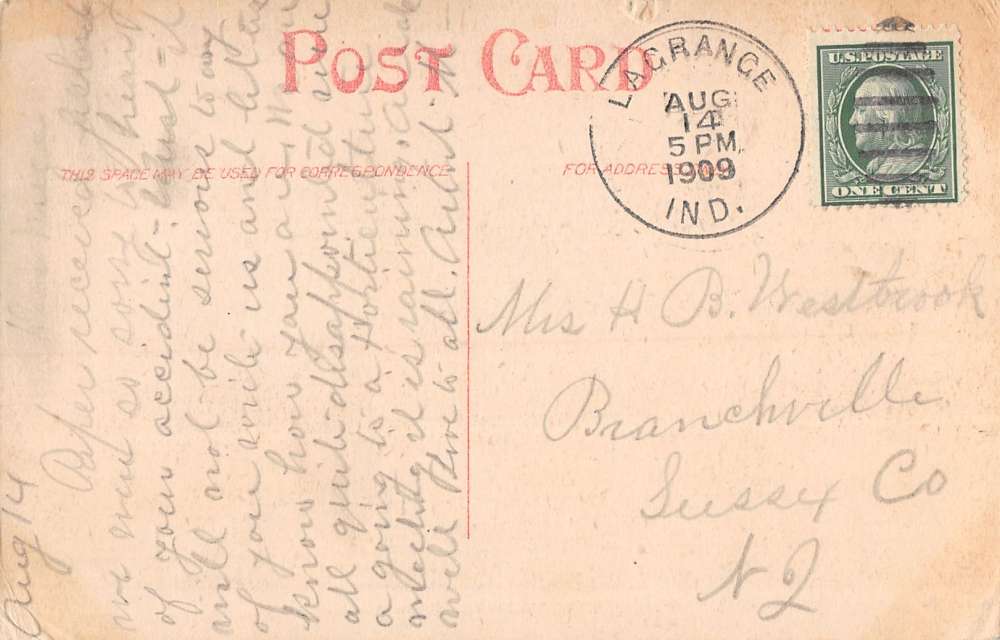 POST CARD
THIS SPACE MAY BE USED FOR CORRESPONDENCE
FOR ADDRESS ONLY
LAGRANGE
AUG
14
5 PM
1909
IND.
U.S. POSTAGE
ONE CENT
Aug 14
Paper received
we were so sorry to hear
of your accident - trust it
will not be serious to any
of you write us and let us
know how you are. We are
all quite disappointed were
a going to a Horticulture
meeting, it is raining, all are
well love to all. Aunt M-
Mrs H B. Westbrook
Branchville
Sussex Co
N J